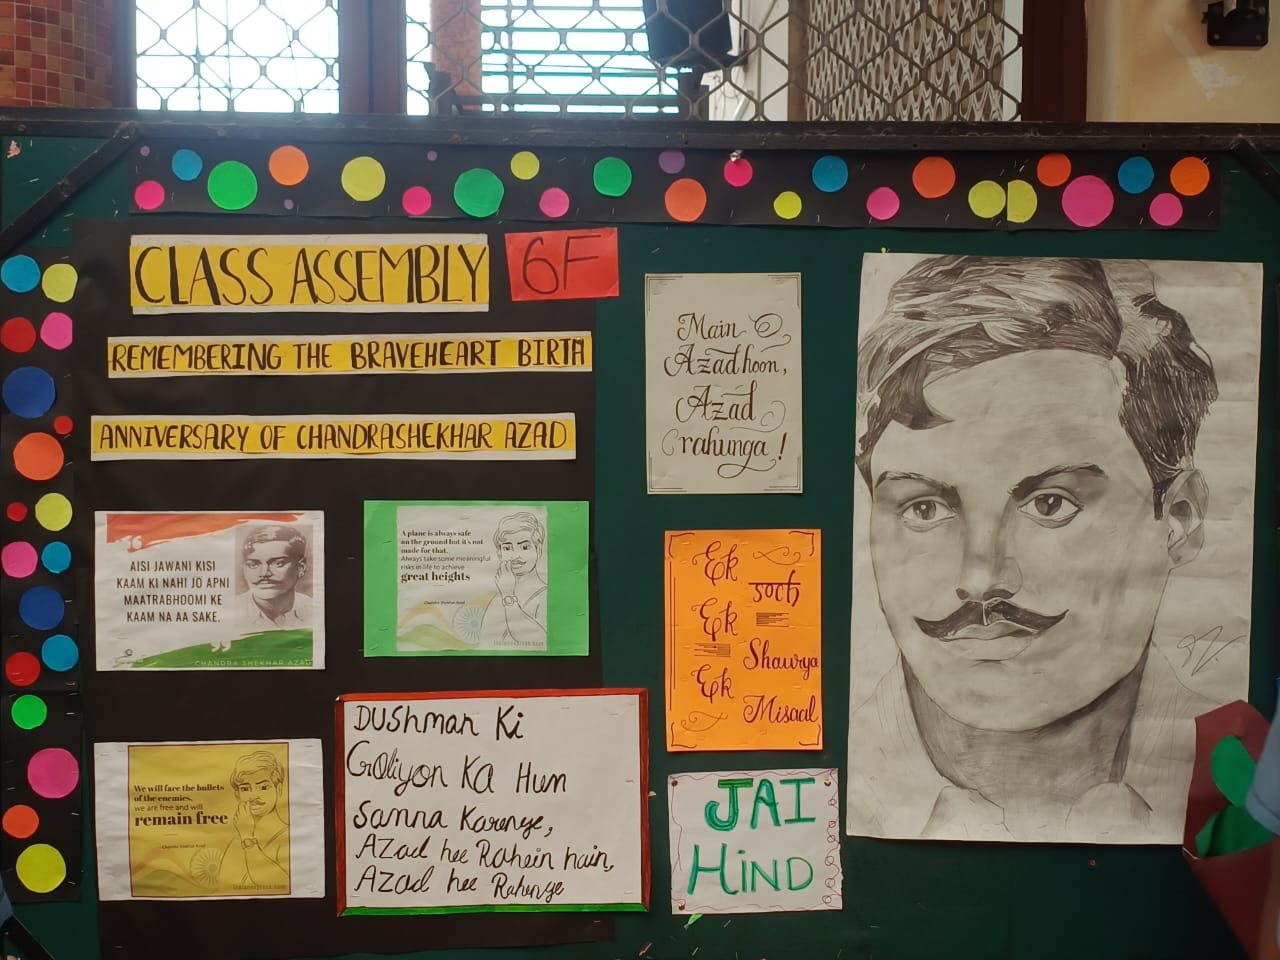 CLASS ASSEMBLY
6F
REMEMBERING THE BRAVEHEART BIRTH
ANNIVERSARY OF CHANDRASHEKHAR AZAD
AISI JAWANI KISI
KAAM KI NAHI JO APNI
MAATRABHOOMI KE
KAAM NA AA SAKE.
CHANDRA SHEKHAR AZAD
A plane is always safe
on the ground but it's not
made for that.
Always take some meaningful
risks in life to achieve
great heights
Chandra Shekhar Azad
indianexpress.com
We will face the bullets
of the enemies,
we are free and will
remain free
Chandra Shekhar Azad
indianexpress.com
Dushman Ki
Goliyon Ka Hum
Samna Karenge,
Azad hee Rahein hain,
Azad hee Rahenge
Main
Azad hoon,
Azad
rahunga!
Ek
सोच
Ek
Shaurya
Ek
Misaal
JAI
HIND